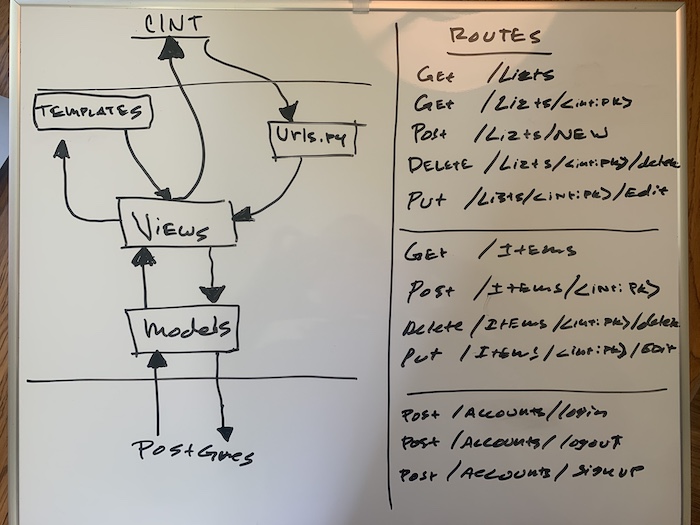 CINT
TEMPLATES
Urls.py
Views
Models
PostGres
ROUTES
Get /Lists
Get /Lists/<int:pk>
Post /Lists/NEW
DELETE /Lists/<int:pk>/delete
Put /Lists/<int:pk>/Edit
Get /Items
Post /Items/<int:pk>
Delete /Items/<int:pk>/delete
Put /Items/<int:pk>/Edit
Post /Accounts/login
Post /Accounts/logout
Post /Accounts/signup